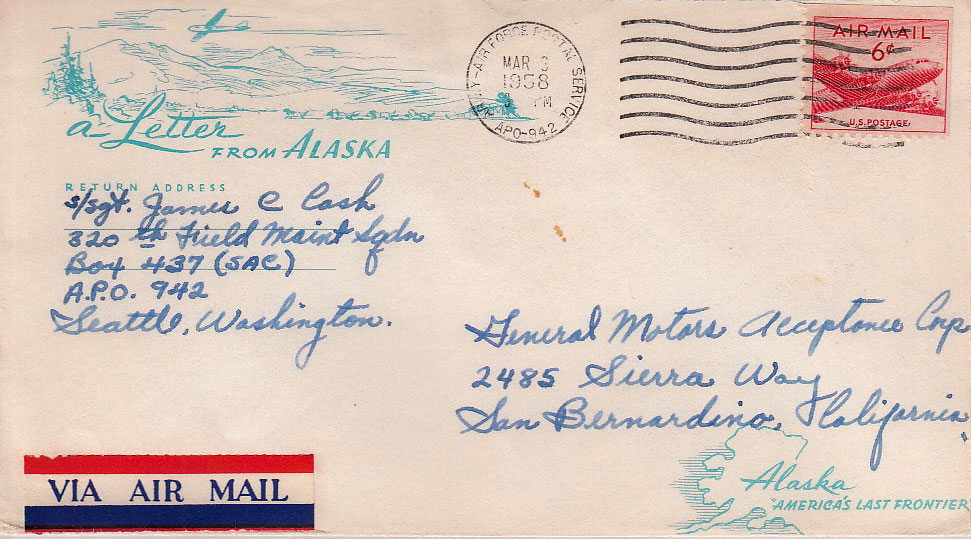 a Letter
FROM ALASKA
RETURN ADDRESS
s/sgt. James C Cash
320 th Field Maint Sqdn
Box 437 (SAC)
A.P.O. 942
Seattle, Washington.
ARMY-AIR FORCE POSTAL SERVICE
MAR
1958
PM
APO-942
AIR MAIL
6¢
U.S. POSTAGE
General Motors Acceptance Corp
2485 Sierra Way
San Bernardino, California.
VIA AIR MAIL
Alaska
"AMERICA'S LAST FRONTIER"